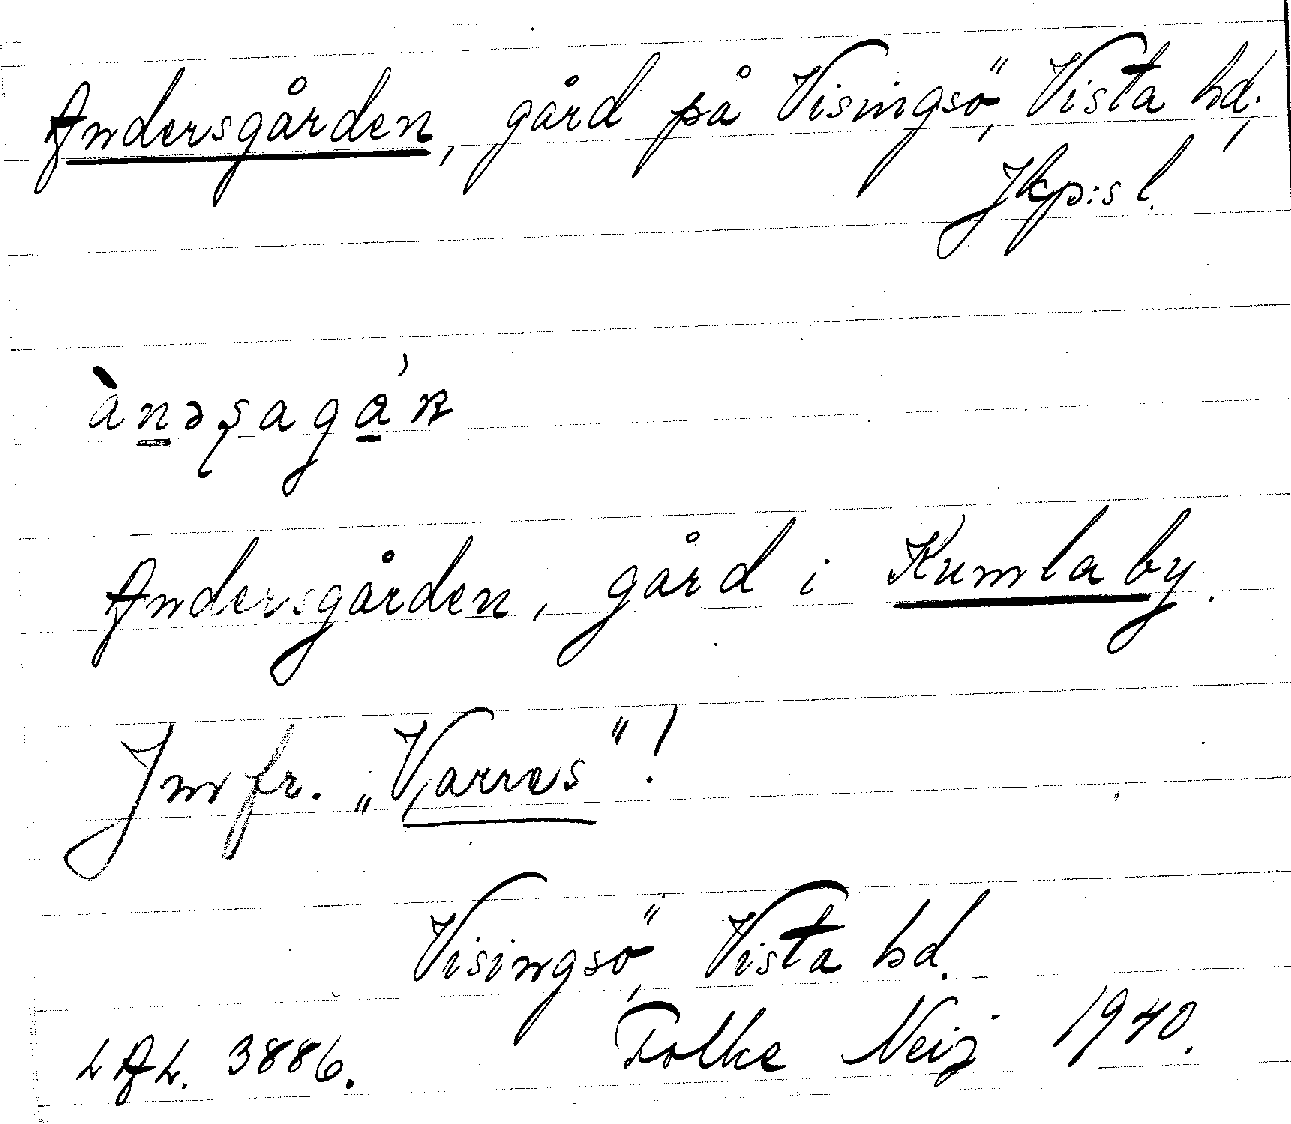 Andersgården, gård på Visingsö, Vista hd,
Jkp:s l.
Andersgården, gård i Kumlaby.
Jmfr. „Varres"!
Visingsö, Vista hd.
LAL. 3886. Folke Neij 1940.